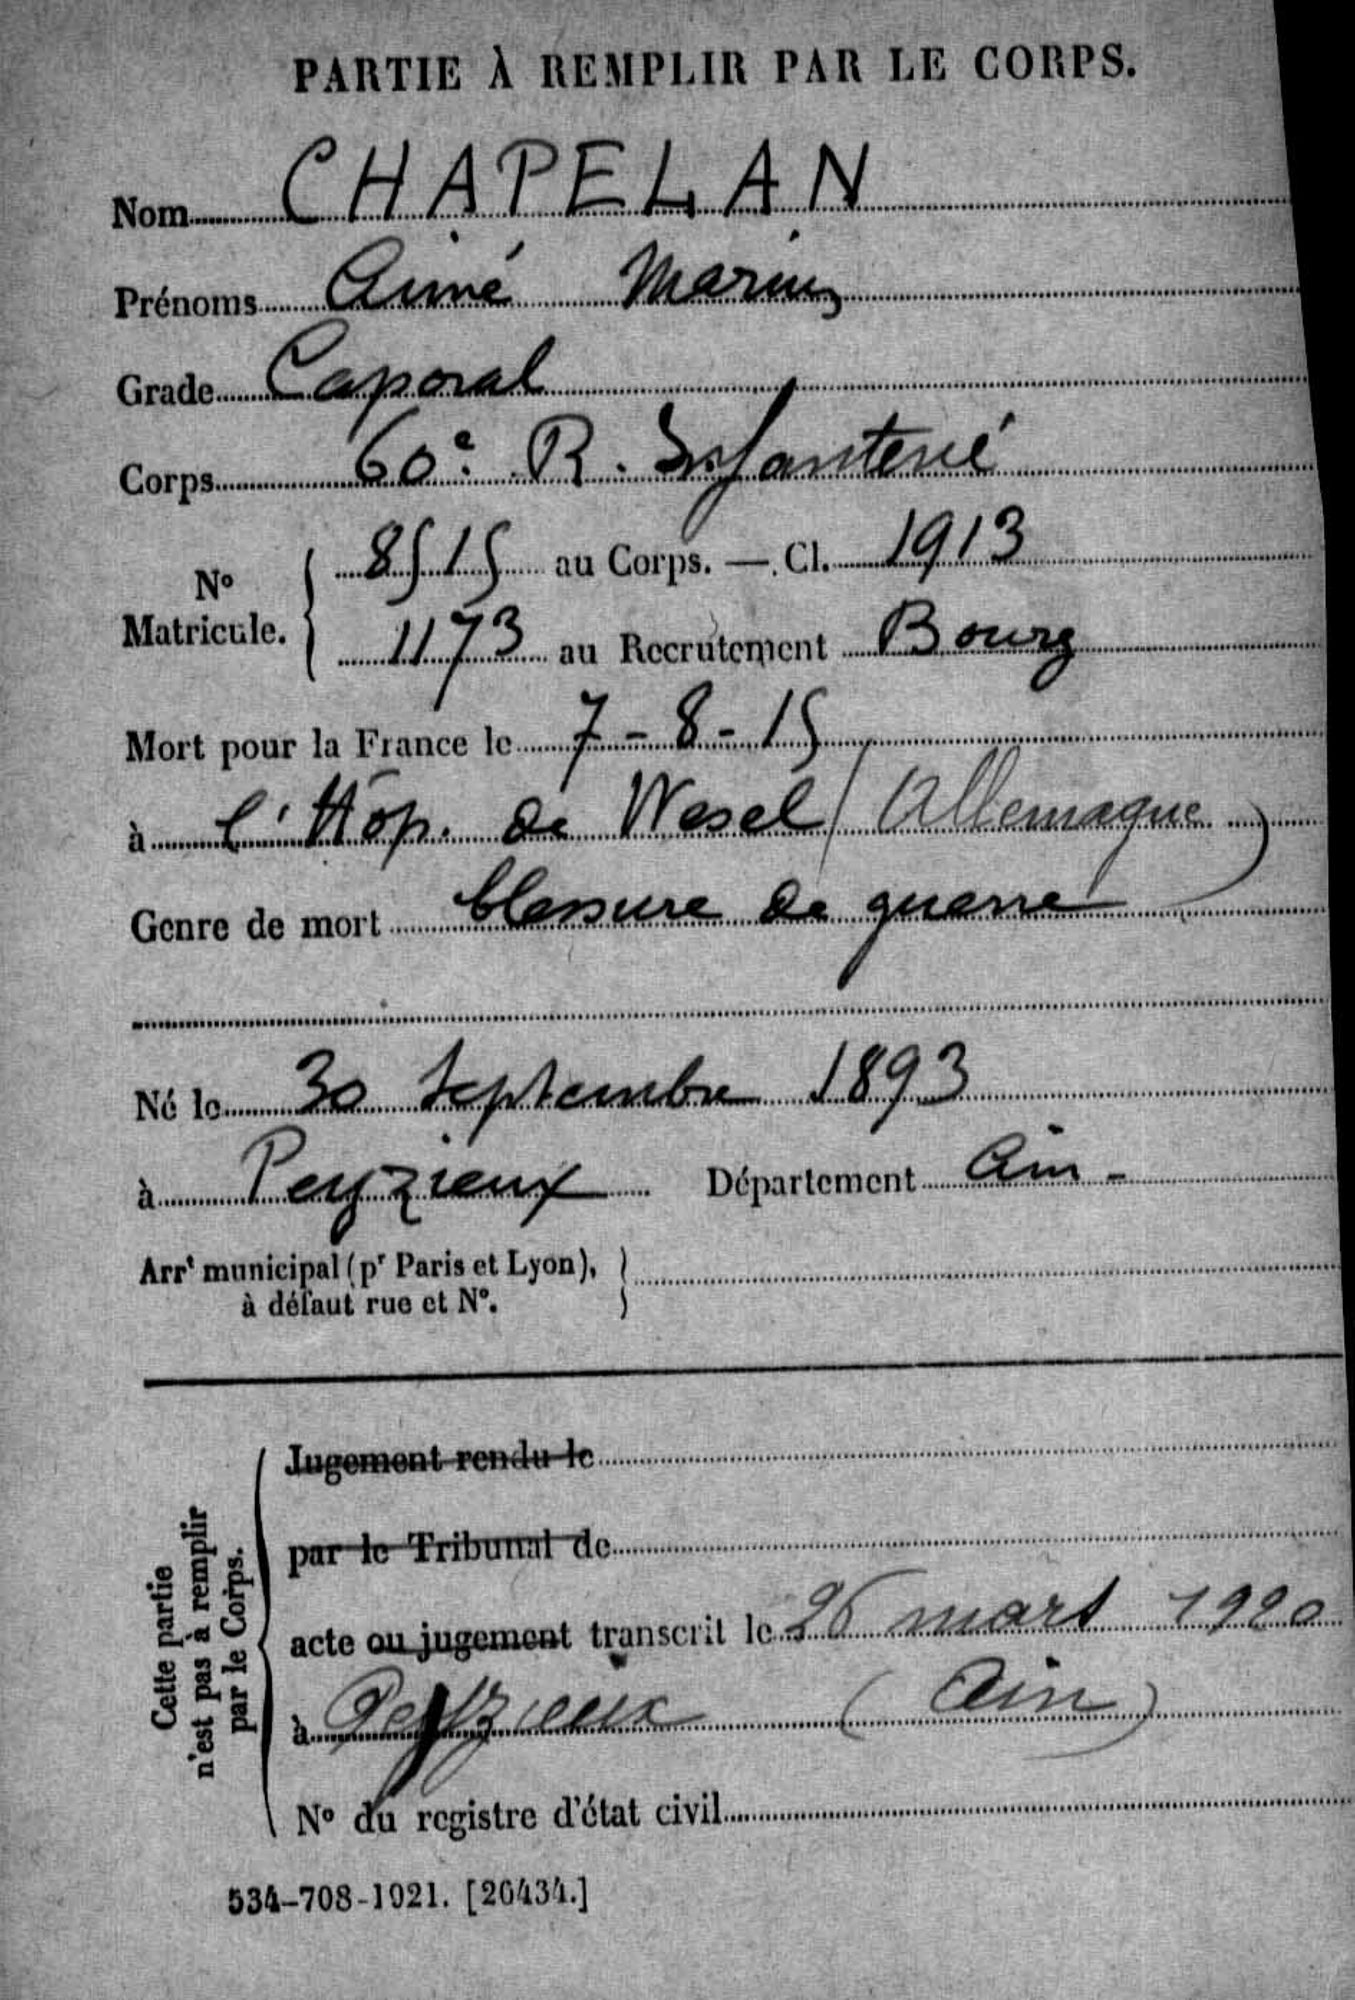 PARTIE À REMPLIR PAR LE CORPS.
Nom CHAPELAN
Prénoms Aimé Marius
Grade Caporal
Corps 60e R. Infanterie
No Matricule. 8515 au Corps. — Cl. 1913
1173 au Recrutement Bourg
Mort pour la France le 7-8-15
à l'Hôp. de Wesel (Allemagne)
Genre de mort blessure de guerre
Né le 30 Septembre 1893
à Peyzieux Département Ain -
Arrt municipal (pr Paris et Lyon),
à défaut rue et No.
Cette partie
n'est pas à remplir
par le Corps.
Jugement rendu le
par le Tribunal de
acte ou jugement transcrit le 26 mars 1920
à Peyzieux (Ain)
No du registre d'état civil
534-708-1921. [26434.]